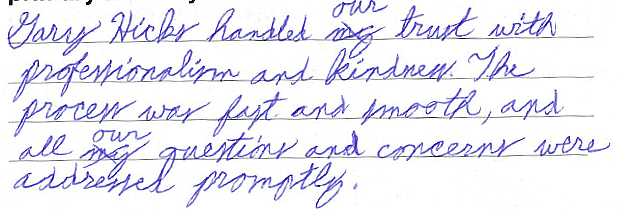 Gary Hicks handled our trust with
professionalism and kindness. The
process was fast and smooth, and
all our questions and concerns were
addressed promptly.